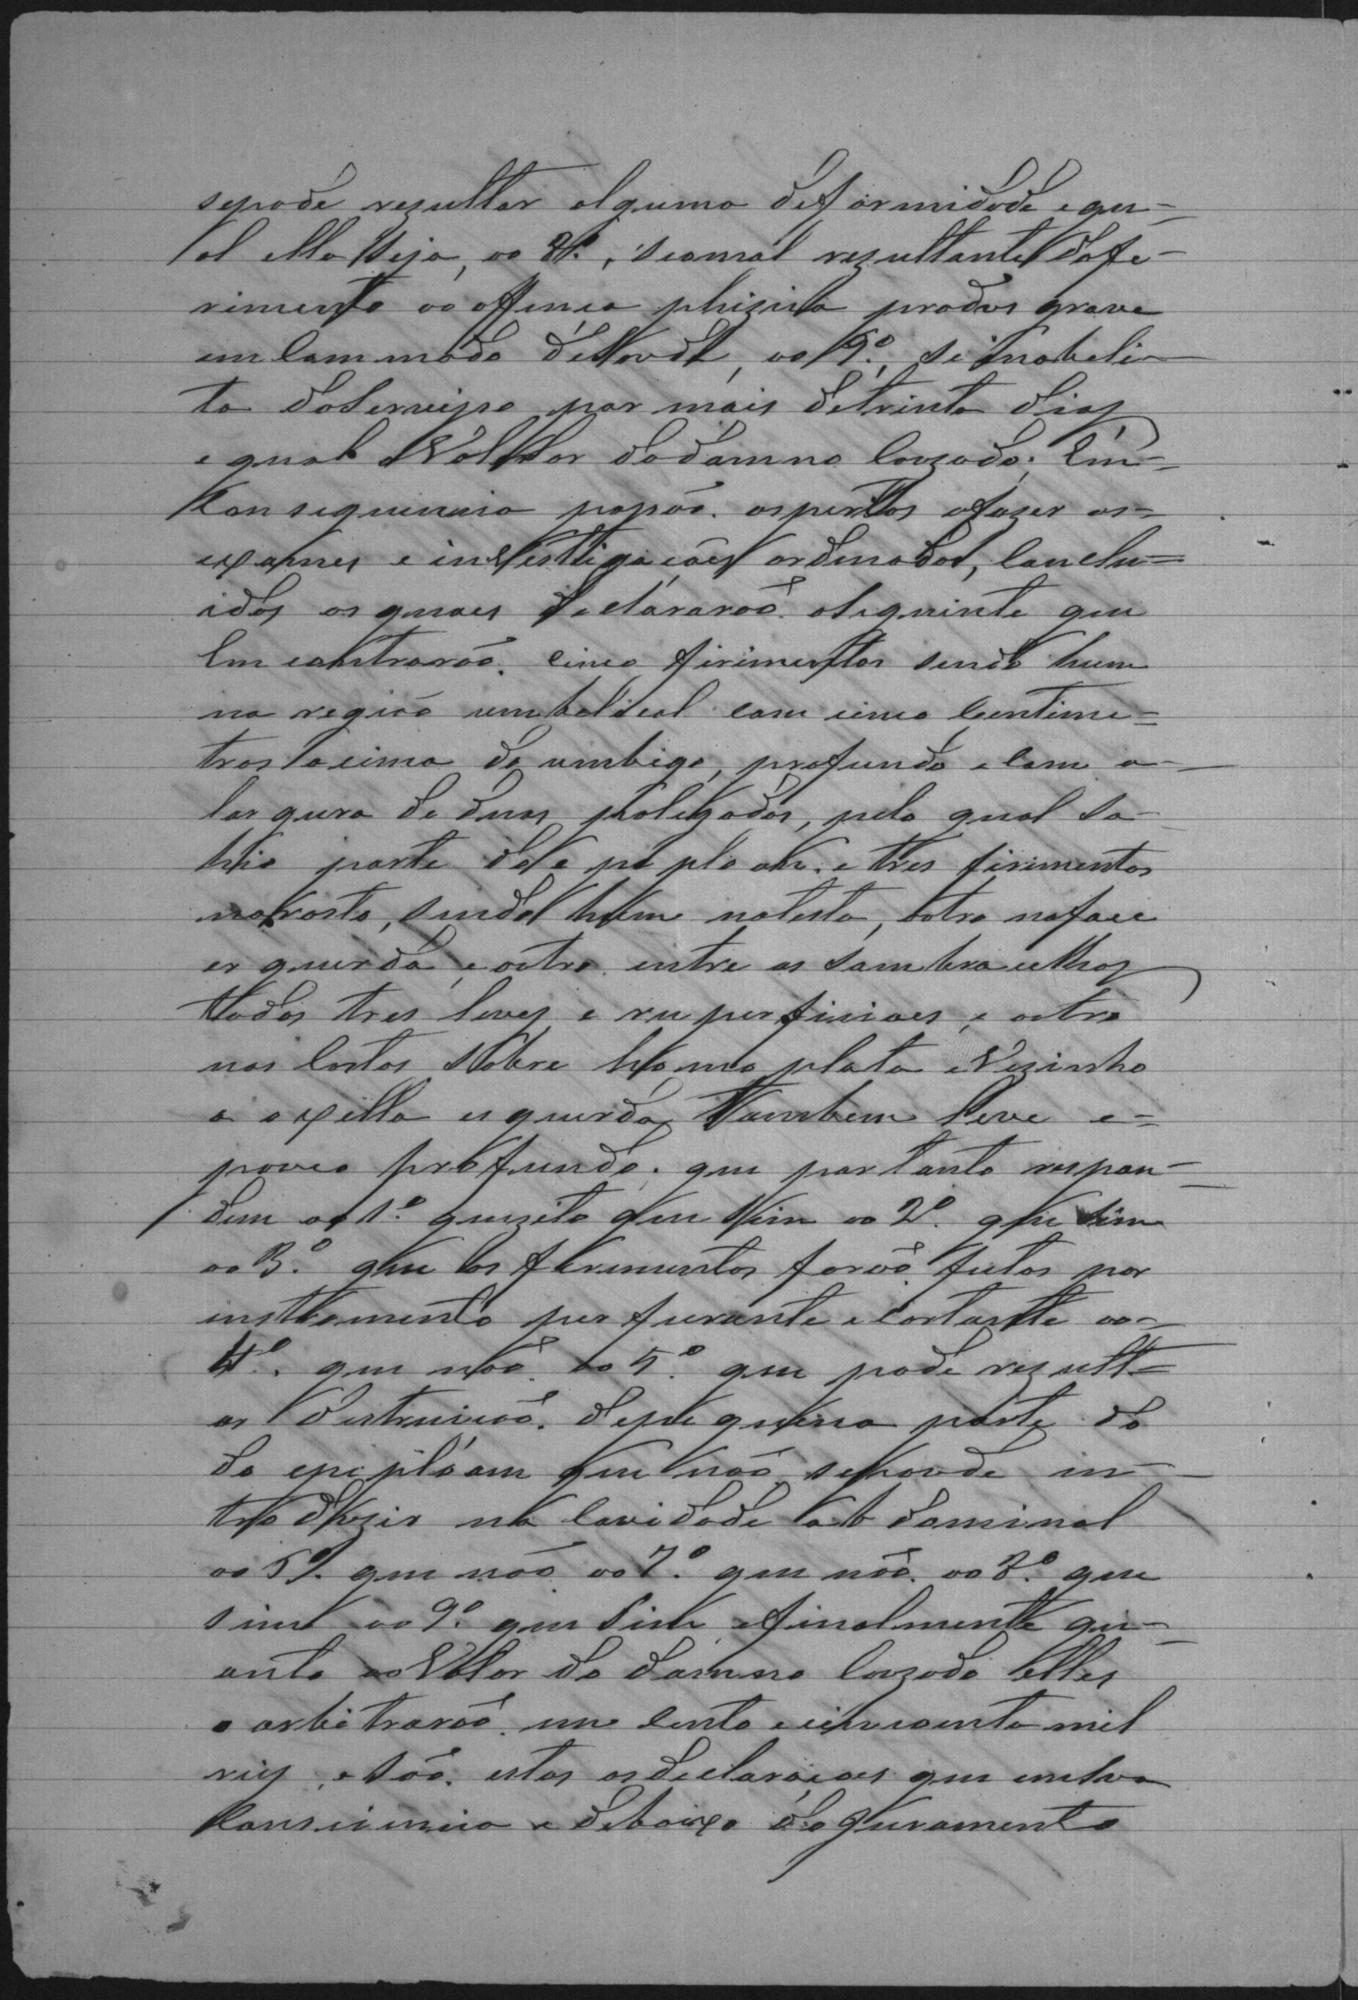 sepode rezultar alguma deformidade equ-
al ella seja, ao 8º, seomal rezultante dofe-
rimento ou offença phizica produs grave
emcommodo deSaude, ao 9º, si inabeli-
ta doServiço por mais detrinta dias
e qual o Vallor dodamno Cauzado; Em-
Consequencia paçaõ os peritos afazer os-
exames e investigações ordenados, Conclu-
idos os quaes declararaõ oseguinte que
Emcontraraõ cinco firimentos sendo hum
na regiaõ umbelical com cinco Centime-
tros acima do umbigo, profundo e Com a-
largura de duas polegadas, pelo qual Sa-
hio parte do epeploam. e tres firimentos
norosto, Sendo hum natesta, outro naface
esquerda, e outro entre as Sambrancelhas
todos tres leves e superficiaes, e outro
nas Costas Sobre homoplata eVezinho
a axilla esquerda Tambem leve e-
pouco profundo; que portanto respon-
dem ao 1º quezito que Sim ao 2º que Sim
ao 3º que os firimentos foraõ feitos por
instromento perfurante e Cortante ao-
4º. que naõ ao 5º que pode rezult-
ar destruiçaõ depequena parte do
do epeploam que naõ sepoude in-
troduzir na Cavidade abdominal
ao 6º. que naõ ao 7º. que naõ ao 8º. que
sim ao 9º. que Sim, efinalmente qu-
anto ao Valor do damno Cauzado elles
o arbitraraõ em Cento e cincoenta mil
reis, e Saõ estas asdeclarações que emsua
Consciencia e debaixo do Juramento